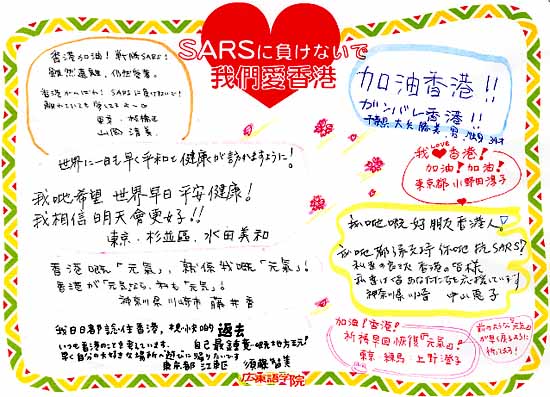 SARSに負けないで
我們愛香港
香港加油！戰勝SARS！
雖然遠離，仍然愛着。
香港がんばれ！SARSに負けないで！
東京・板橋区
加油香港!!
ガンバレ香港!!
我LOVE香港！
加油！加油！
東京都 小野田淳子
世界に一日も早く平和と健康が訪れますように！
我哋希望 世界早日平安健康！
我相信明天會更好!!
東京・杉並區 水田美和
香港嘅「元氣」，就係我嘅「元氣」。
香港が「元気なら、私も「元気」。
神奈川県 川崎市 藤井香
我哋嘅好朋友香港人！
我哋都係支持你哋抗SARS！
私達の愛する香港の皆様
私達は皆あなたたちを応援しています
神奈川県
過去
いつも香港のことを考えています。
自己最鍾意嘅地方玩！
早く自分の大好きな場所へ遊びに帰りたいです
東京都 江東区 須藤智美
加油！香港！
祈禱早日恢復「元氣」！
東京・練馬・上野澄子
前のような「元気」
が早く戻るように
祈ってます！
広東語学院